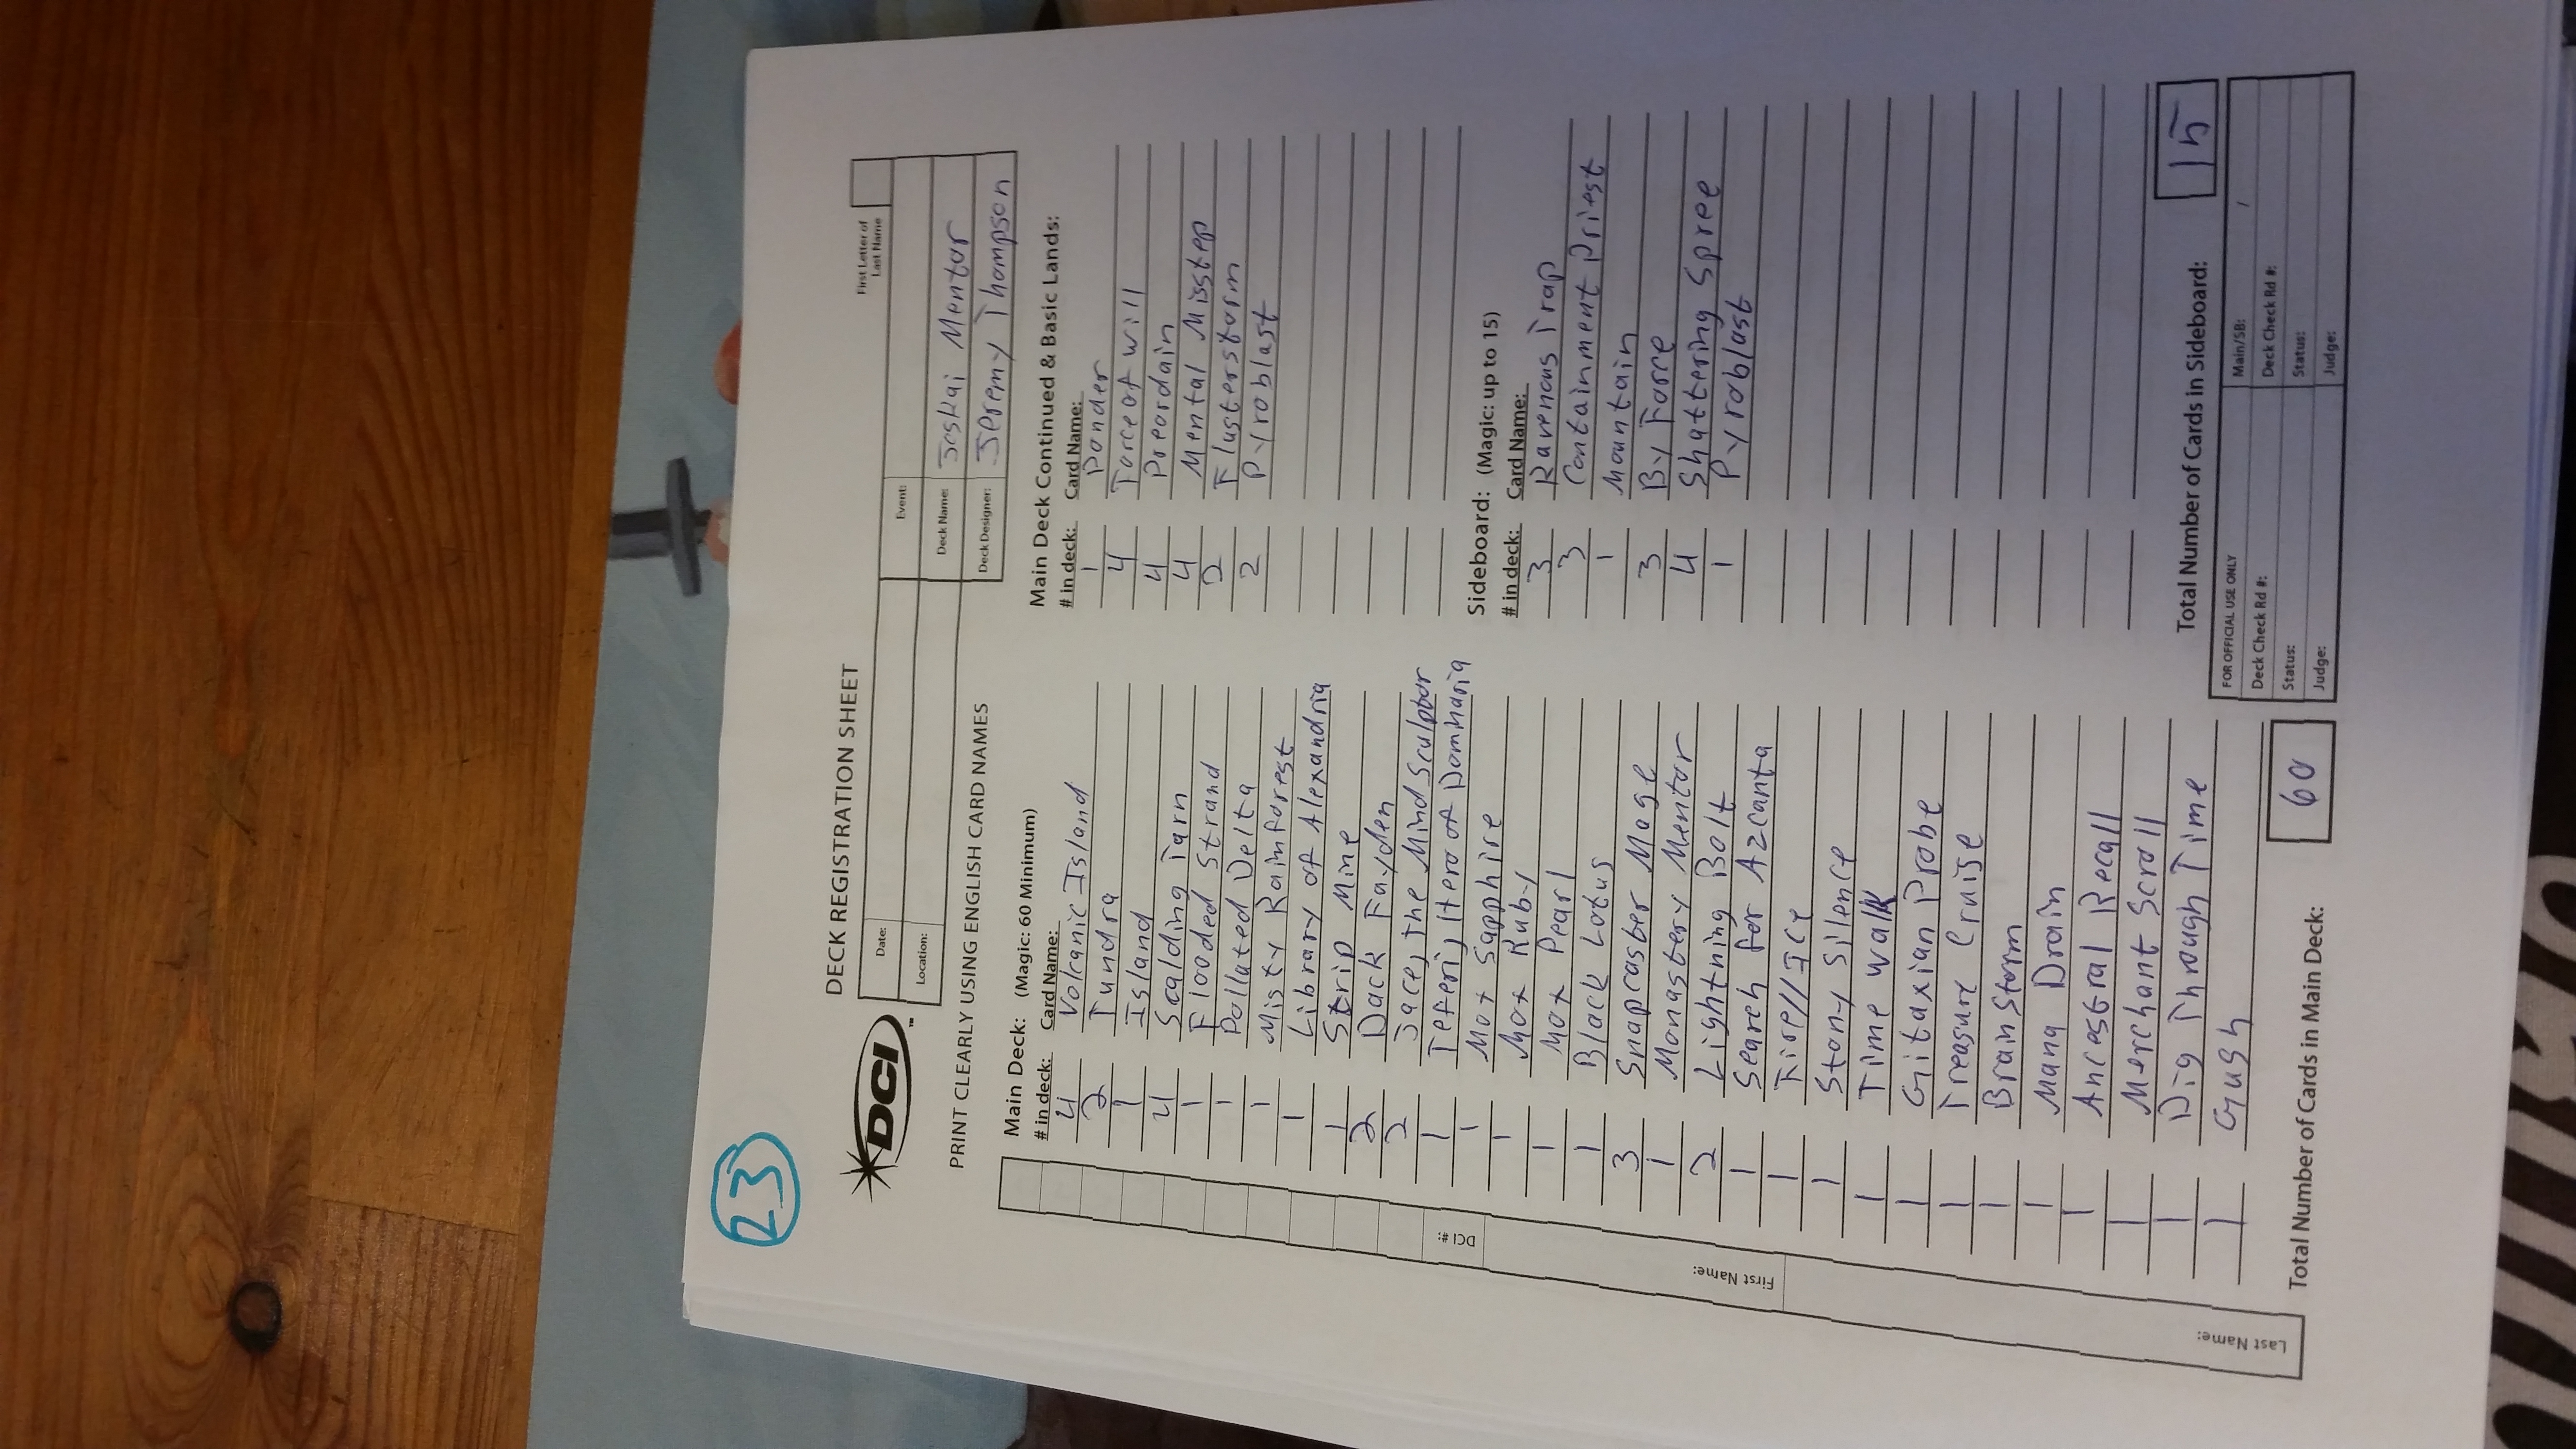 23
DECK REGISTRATION SHEET
DCI
™
First Letter of
Last Name
Date:
Event:
Location:
Deck Name: Jeskai Mentor
Deck Designer: Jeremy Thompson
PRINT CLEARLY USING ENGLISH CARD NAMES
Main Deck: (Magic: 60 Minimum)
# in deck: Card Name:
4 Volcanic Island
2 Tundra
1 Island
4 Scalding Tarn
1 Flooded Strand
1 Polluted Delta
1 Misty Rainforest
1 Library of Alexandria
1 Strip Mine
2 Dack Fayden
2 Jace, the Mind Sculptor
1 Teferi, Hero of Dominaria
1 Mox Sapphire
1 Mox Ruby
1 Mox Pearl
1 Black Lotus
3 Snapcaster Mage
1 Monastery Mentor
2 Lightning Bolt
1 Search for Azcanta
1 Fire//Ice
1 Stony Silence
1 Time walk
1 Gitaxian Probe
1 Treasure Cruise
1 Brain Storm
1 Mana Drain
1 Ancestral Recall
1 Merchant Scroll
1 Dig Through Time
1 Gush
Total Number of Cards in Main Deck: 60
Main Deck Continued & Basic Lands:
# in deck: Card Name:
1 Ponder
4 Force of Will
4 Preordain
4 Mental Misstep
2 Flusterstorm
2 Pyroblast
Sideboard: (Magic: up to 15)
# in deck: Card Name:
3 Ravenous Trap
3 Containment Priest
1 Mountain
3 By Force
4 Shattering Spree
1 Pyroblast
Total Number of Cards in Sideboard: 15
FOR OFFICIAL USE ONLY
Main/SB: /
Deck Check Rd #:
Deck Check Rd #:
Status:
Status:
Judge:
Judge:
DCI #:
First Name:
Last Name: